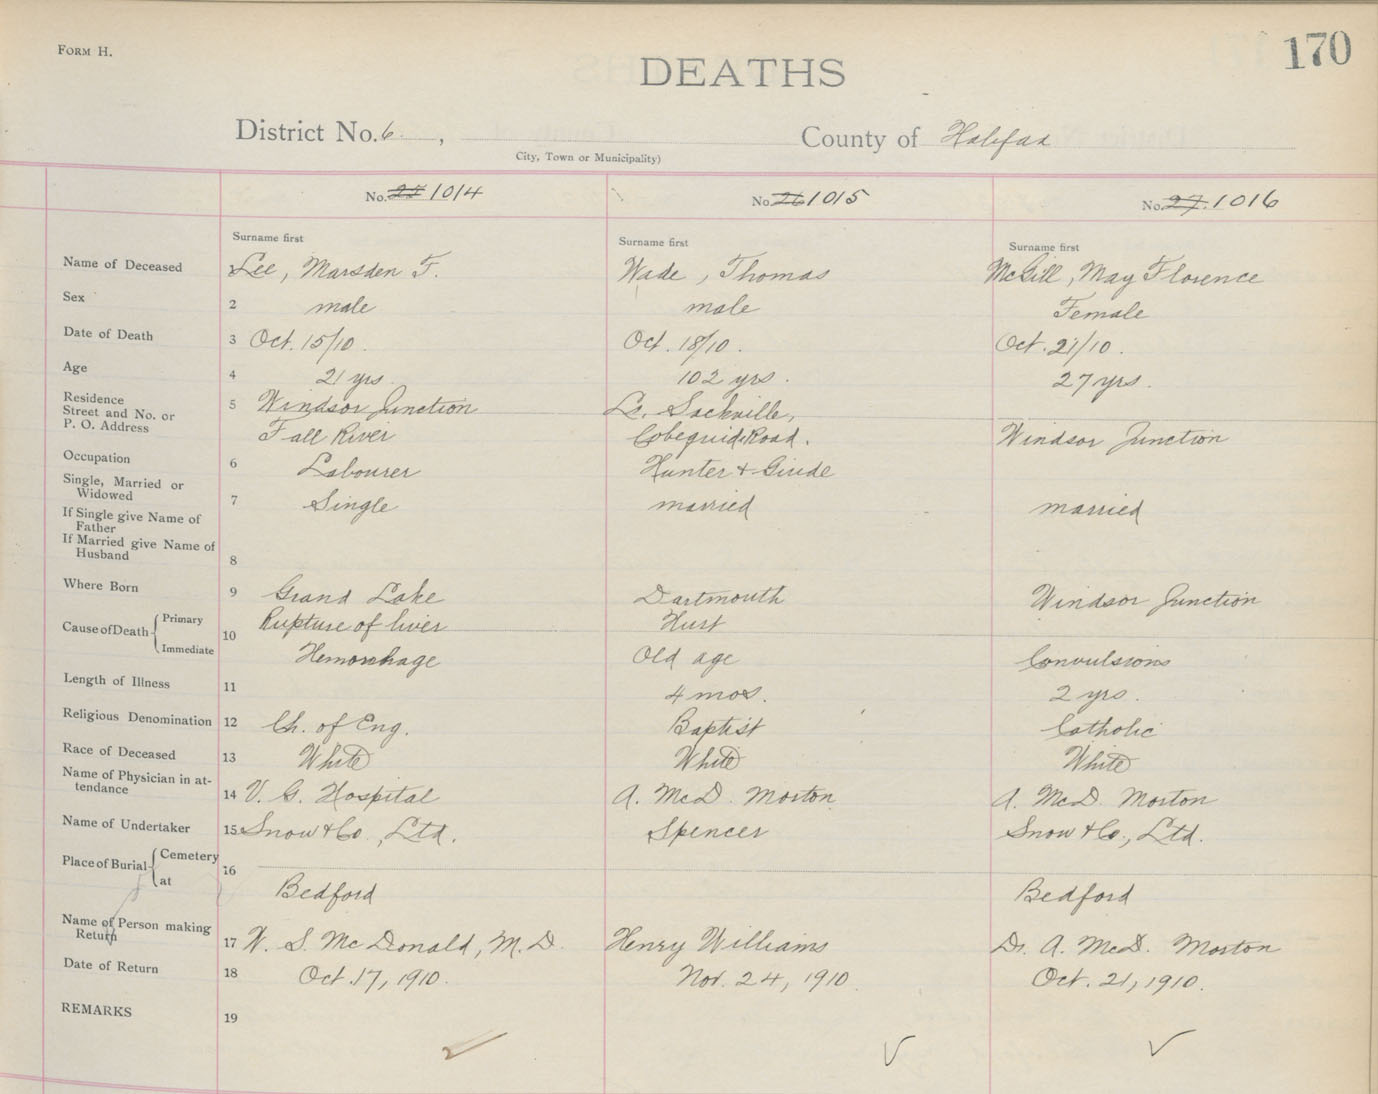 FORM H.
170
DEATHS
District No. 6 , County of Halifax
City, Town or Municipality)
No. 25 1014 No. 26 1015 No. 27. 1016
Surname first Surname first Surname first
Name of Deceased 1 Lee, Marsden F. Wade, Thomas McGill, May Florence
Sex 2 male male Female
Date of Death 3 Oct. 15/10. Oct. 18/10. Oct. 21/10.
Age 4 21 yrs. 102 yrs. 27 yrs.
Residence 5 Windsor Junction Lr. Sackville,
Street and No. or
P. O. Address Fall River Cobequid Road. Windsor Junction
Occupation 6 Labourer Hunter + Giude
Single, Married or
Widowed 7 Single married married
If Single give Name of
Father
If Married give Name of
Husband 8
Where Born 9 Grand Lake Dartmouth Windsor Junction
Cause of Death Primary 10 Rupture of liver Hurt
Immediate Hemorrhage Old age Convulsions
Length of Illness 11 4 mos. 2 yrs.
Religious Denomination 12 Ch. of Eng. Baptist Catholic
Race of Deceased 13 White White White
Name of Physician in at-
tendance 14 V. G. Hospital A. McD. Morton A. McD. Morton
Name of Undertaker 15 Snow & Co., Ltd. Spencer Snow & Co., Ltd.
Place of Burial Cemetery 16
at Bedford Bedford
Name of Person making
Return 17 W. S. McDonald, M.D. Henry Williams Dr. A. McD. Morton
Date of Return 18 Oct. 17, 1910. Nov. 24, 1910. Oct. 21, 1910.
REMARKS 19